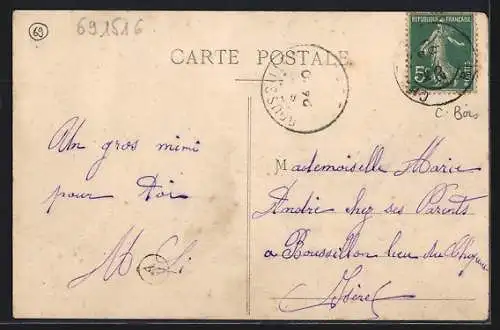 69
691516
CARTE POSTALE
REPUBLIQUE FRANÇAISE
5
C. Bois
Un gros mimi
pour toi
M
Mademoiselle Marie
André chez ses Parents
a Roussillon lieu du
Isère